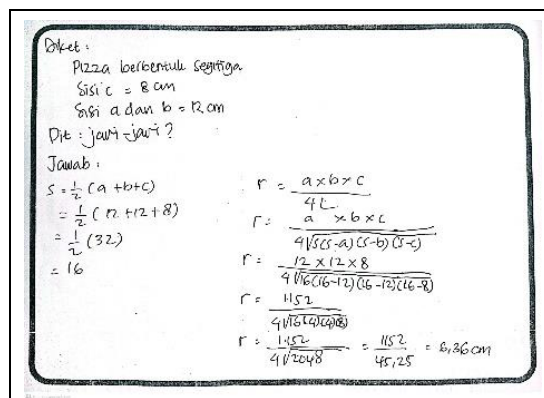 Diket :
Pizza berbentuk segitiga
Sisi c = 8 cm
Sisi a dan b = 12 cm
Dit : jari-jari ?
Jawab :
S = 1/2 (a + b + c)
= 1/2 (12 + 12 + 8)
= 1/2 (32)
= 16
r = a x b x c / 4L
r = a x b x c / 4√s(s-a)(s-b)(s-c)
r = 12 x 12 x 8 / 4√16(16-12)(16-12)(16-8)
r = 1152 / 4√16(4)(4)(8)
r = 1152 / 4√2048 = 1152 / 45,25 = 6,36 cm